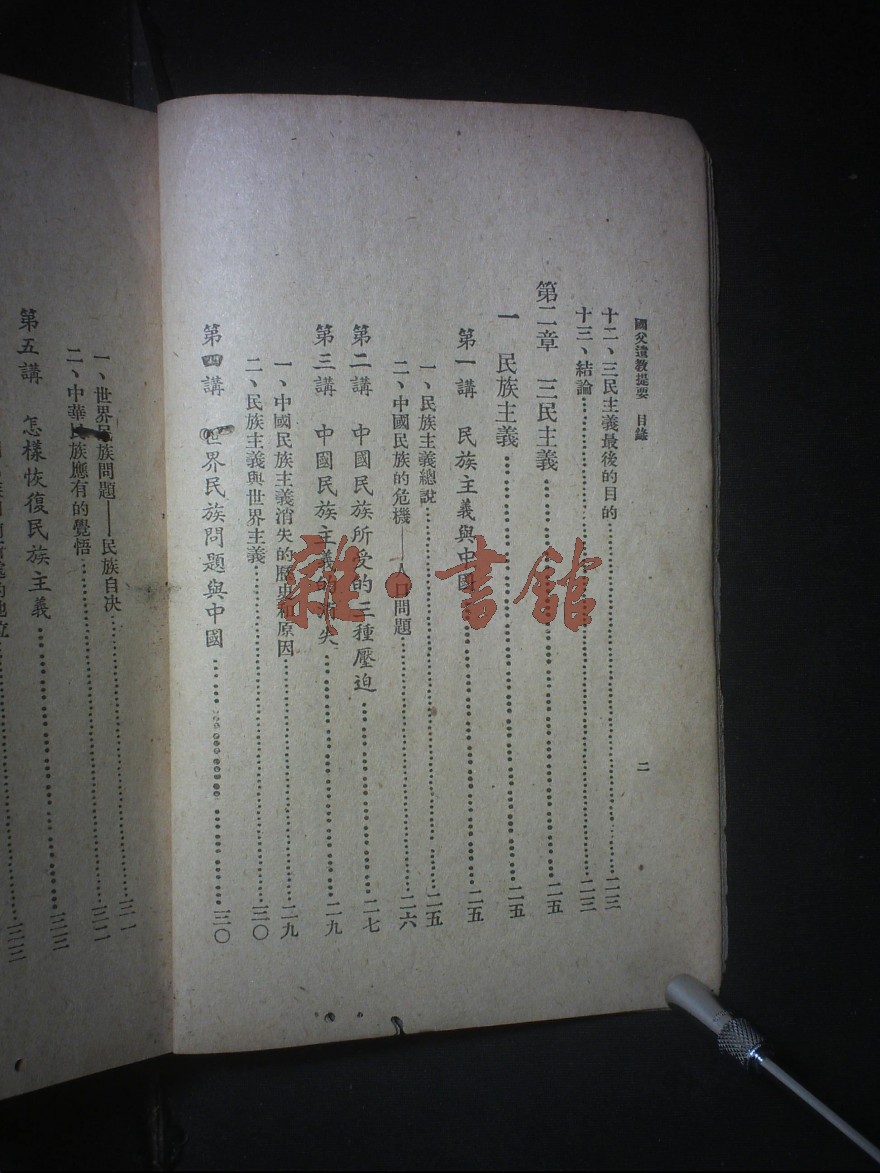 國父遺教提要 目錄
二
十二、三民主義最後的目的……二三
十三、結論……二三
第二章 三民主義……二五
一 民族主義……二五
第一講 民族主義與中國……二五
一、民族主義總說……二五
二、中國民族的危機——人口問題……二六
第二講 中國民族所受的三種壓迫……二七
第三講 中國民族主義的消失……二九
一、中國民族主義消失的歷史和原因……二九
二、民族主義與世界主義……三〇
第四講 世界民族問題與中國……三〇
一、世界民族問題——民族自決……三一
二、中華民族應有的覺悟……三二
第五講 怎樣恢復民族主義……三三
的地位……三三
雜·書館